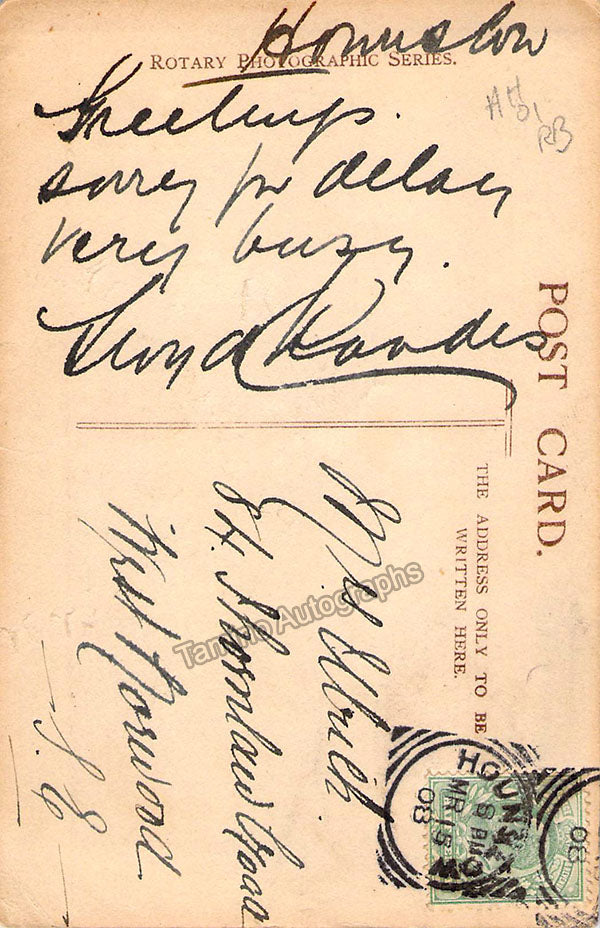 Hounslow
ROTARY PHOTOGRAPHIC SERIES.
Greetings.
sorry for delay
very busy.
Lloyd Chandos
POST CARD.
THE ADDRESS ONLY TO BE
WRITTEN HERE.
Ulrich
84. Thornlaw Road
West Norwood
S.E
HOUNSLOW
MR 15
08
08
RB
Tamino Autographs